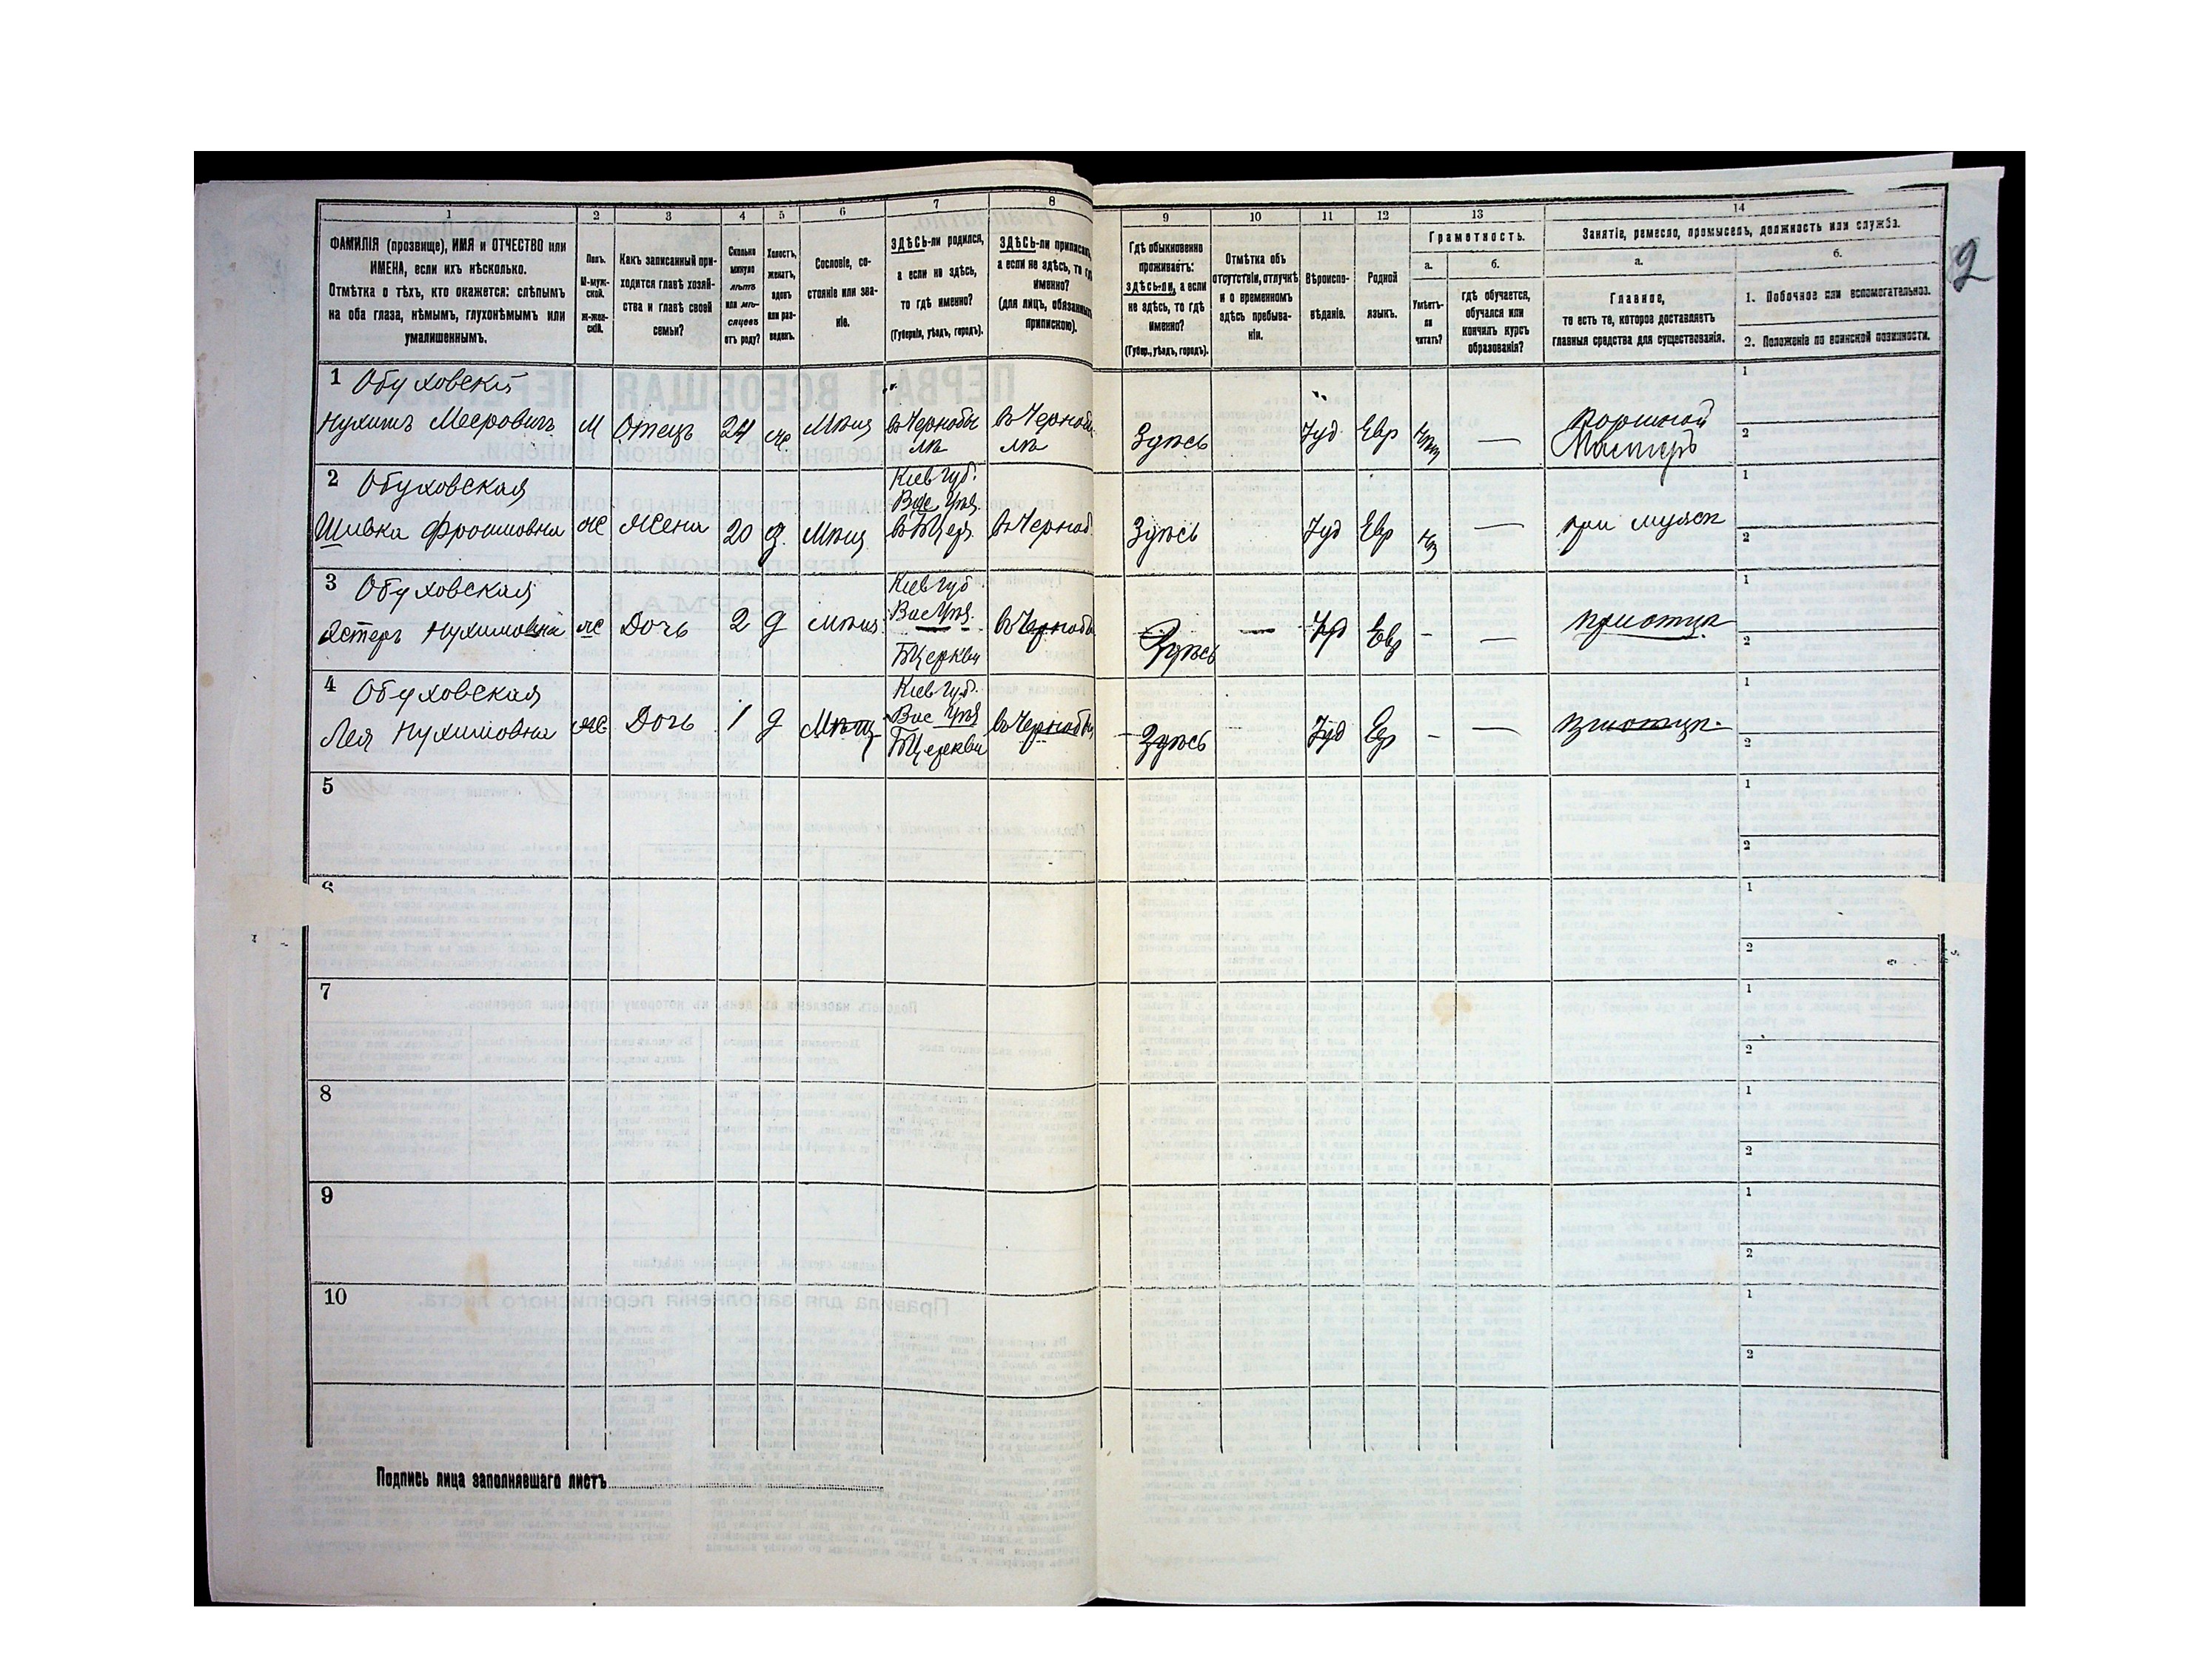 1 2 3 4 5 6 7 8 9 10 11 12 13 14
ФАМИЛІЯ (прозвище), ИМЯ и ОТЧЕСТВО или
ИМЕНА, если ихъ нѣсколько.
Отмѣтка о тѣхъ, кто окажется: слѣпымъ
на оба глаза, нѣмымъ, глухонѣмымъ или
умалишеннымъ.
Полъ.
М-муж-
ской.
ж-жен-
скій.
Какъ записанный при-
ходится главѣ хозяй-
ства и главѣ своей
семьи?
Сколько
минуло
лѣтъ
или мѣ-
сяцевъ
отъ роду?
Холостъ,
женатъ,
вдовъ
или раз-
веденъ.
Сословіе, со-
стояніе или зва-
ніе.
ЗДѢСЬ-ли родился,
а если не здѣсь,
то гдѣ именно?
(Губернія, уѣздъ, городъ).
ЗДѢСЬ-ли приписанъ,
а если не здѣсь, то гдѣ
именно?
(для лицъ, обязанныхъ
припискою).
Гдѣ обыкновенно
проживаетъ:
здѣсь-ли, а если
не здѣсь, то гдѣ
именно?
(Губер., уѣздъ, городъ).
Отмѣтка объ
отсутствіи, отлучкѣ
и о временномъ
здѣсь пребыва-
ніи.
Вѣроиспо-
вѣданіе.
Родной
языкъ.
Грамотность.
а.
Умѣетъ-
ли
читать?
б.
гдѣ обучается,
обучался или
кончилъ курсъ
образованія?
Занятіе, ремесло, промыселъ, должность или служба.
а.
Главное,
то есть то, которое доставляетъ
главныя средства для существованія.
б.
1. Побочное или вспомогательное.
2. Положеніе по воинской повинности.
2
1 Обуховскій
Нухимъ Мееровичъ М Отецъ 24 ж. Мѣщ въ Чернобы
лѣ въ Чернобы
лѣ Здѣсь Іуд Евр
Мастеръ
1
2
2 Обуховская
Шивка Фроимовна Ж Жена 20 З. Мѣщ
Кіев губ.
Вас Уѣз.
въ БЦерк въ Черноб. Здѣсь Іуд Евр — при мужѣ
1
2
3 Обуховская
Эстеръ Нухимовна Ж Дочь 2 д мѣщ
Кіев губ
Вас Уѣз.
БЦеркви въ Чернобы Здѣсь — Іуд Евр - — при отцѣ
1
2
4 Обуховская
Лея Нухимовна Ж Дочь 1 д Мѣщ
Кіев Губ.
Вас Уѣз
БЦеркви въ Чернобы Здѣсь — Іуд Евр - — при отцѣ
1
2
5
1
2
6
1
2
7
1
2
8
1
2
9
1
2
10
1
2
Подпись лица заполнявшаго листъ